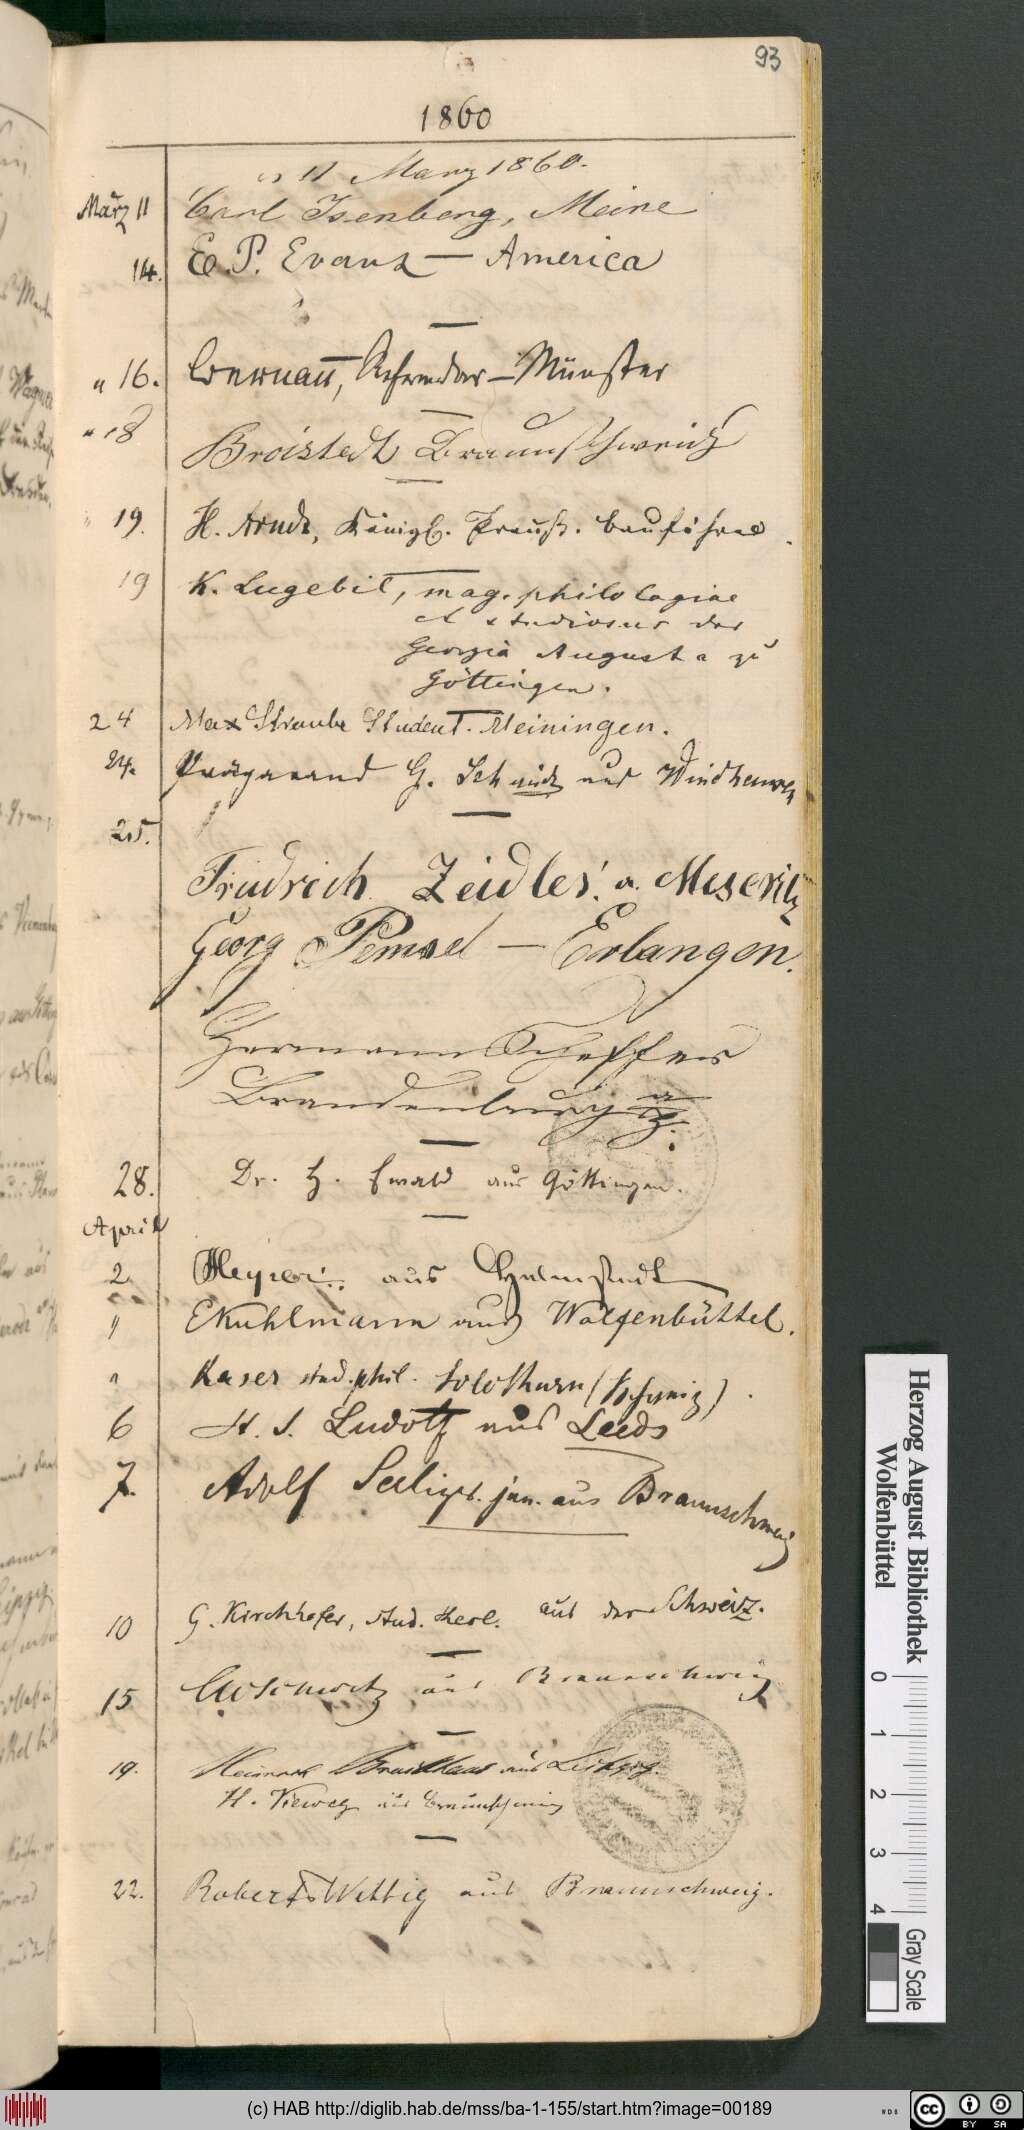 93
1860
11 März 1860.
März 11 Carl Isenberg, Meine
14. E. P. Evans – America
" 16. Referendar – Münster
" 18 Broistedt Braunschweig
19. H. Arndt, Königl. Preuß. Bauführer.
19 K. Lugebil, mag. philologiae
et studiosus der
Georgia Augusta zu
Göttingen.
24 Max Straube Student. Meiningen.
24. G. Schmidt aus Windhausen
25.
Friedrich Zeidler. a. Meseritz
Georg Pemsel – Erlangen.
Hermann Scheffer
Brandenburg a/H.
28. Dr. H. Ewald aus Göttingen.
April
2. Meyer. aus Helmstedt
" EKuhlmann aus Wolfenbüttel.
" Kaser stud. phil. Solothurn (Schweiz).
6 H. S. Ludolf aus Leeds
7. Adolf Seeliger. jun. aus Braunschweig
10 G. Kirchhofer, stud. theol. aus der Schweiz.
15 aus Braunschweig
19. Heinrich Brockhaus aus Leipzig.
H. Vieweg aus Braunschweig
22. Robert Wittig aus Braunschweig.
Herzog August Bibliothek
Wolfenbüttel
0 1 2 3 4
Gray Scale
(c) HAB http://diglib.hab.de/mss/ba-1-155/start.htm?image=00189
WDB
cc BY SA